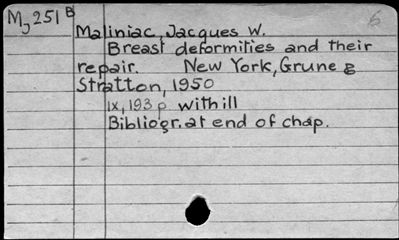 Mj 251 B
6
Maliniac, Jacques W.
Breast deformities and their
repair. New York, Grune &
Stratton, 1950
ix, 193 p with ill
Bibliogr. at end of chap.